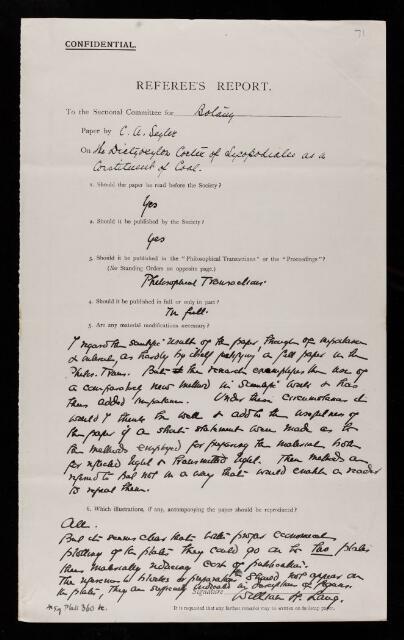 71
CONFIDENTIAL.
REFEREE'S REPORT.
To the Sectional Committee for Botany
Paper by C. A. Seyler
On The Dictyoxylon Cortex of Lycopodiales as a
Constituent of Coal.
1. Should the paper be read before the Society?
Yes
2. Should it be published by the Society?
Yes
3. Should it be published in the "Philosophical Transactions" or the "Proceedings"?
(See Standing Orders on opposite page.)
Philosophical Transactions.
4. Should it be published in full or only in part?
In full.
5. Are any material modifications necessary?
I regard the scientific result of the paper, though of importance
& interest, as hardly by itself justifying a full paper in the
Philos. Trans. But the research exemplifies the use of
a comparatively new method in Scientific work & has
thus added importance. Under these circumstances it
would I think be well & add to the usefulness of
the paper if a short statement were made as to
the methods employed for preparing the material both
for reflected light & transmitted light. These methods are
referred to but not in a way that would enable a reader
to repeat them.
6. Which illustrations, if any, accompanying the paper should be reproduced?
All.
But it seems clear that with proper economical
plotting of the plates they could go on to two plates
thus materially reducing cost of publication.
The references to blocks or preparations should not appear on
the plates. They are sufficiently indicated in description of figures.
Signature William H. Lang.
It is requested that any further remarks may be written on the opposite page.